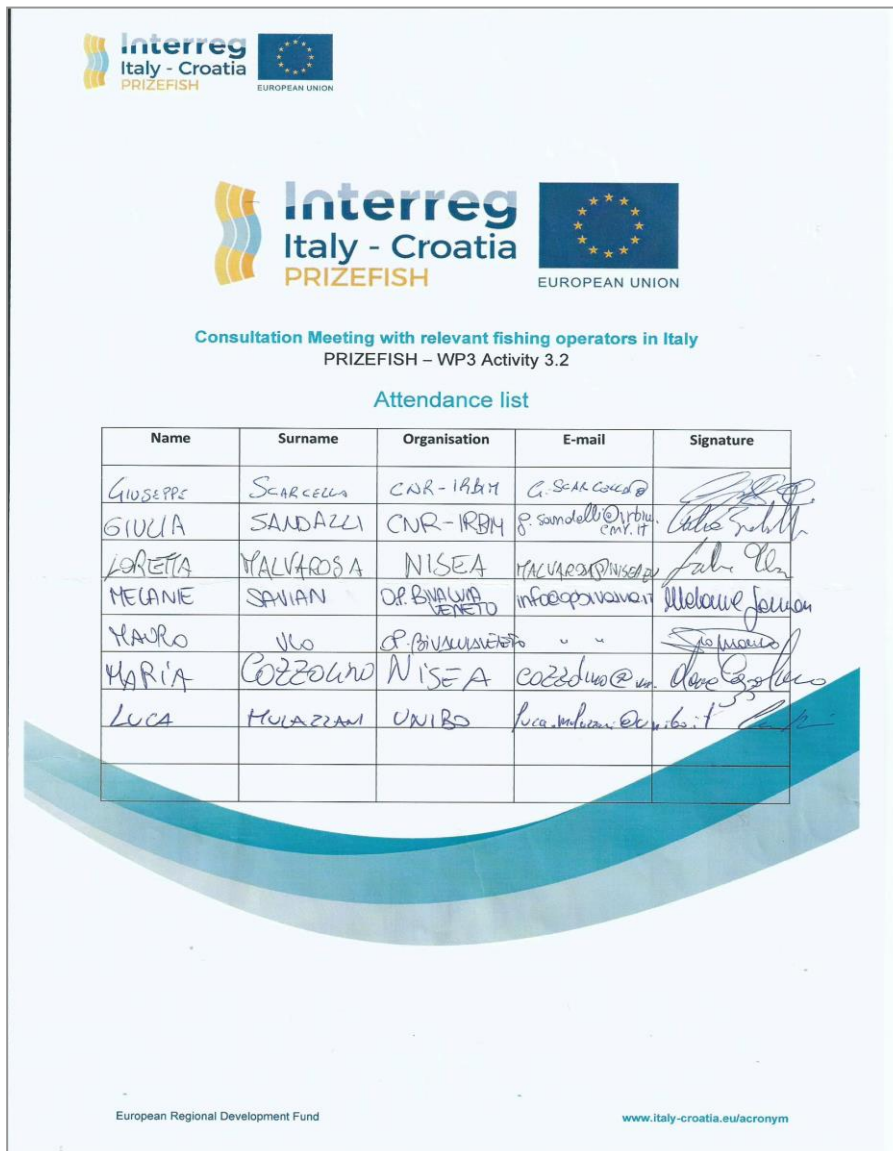 Interreg
Italy - Croatia
PRIZEFISH
EUROPEAN UNION
Interreg
Italy - Croatia
PRIZEFISH
EUROPEAN UNION
Consultation Meeting with relevant fishing operators in Italy
PRIZEFISH – WP3 Activity 3.2
Attendance list
Name Surname Organisation E-mail Signature
GIUSEPPE SCARCELLA CNR-IRBIM
GIULIA SANDALLI CNR-IRBIM
LORETTA MALVAROSA NISEA
MELANIE SAVIAN O.P. BIVALVIA VENETO
MAURO VIO O.P. BIVALVIA VENETO " "
MARIA COZZOLINO NISEA
LUCA MULAZZANI UNIBO
European Regional Development Fund
www.italy-croatia.eu/acronym